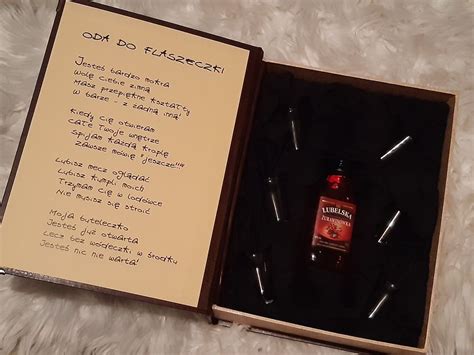 ODA DO FLASZECZKI
Jesteś bardzo mokra
Wolę ciebie zimną
Masz przepiękne kształty
w barze - z żadną inną
Kiedy cię otwieram
całe Twoje wnętrze
Spijam każdą kroplę
zawsze mówię "jeszcze!!!"
Lubisz mecz oglądać
Lubisz kumpli moich
Trzymam cię w lodówce
Nie musisz się stroić
Moja buteleczko
Jesteś już otwarta
Lecz bez wódeczki w środku
Jesteś nic nie warta!
LUBELSKA
ŻURAWINÓWKA